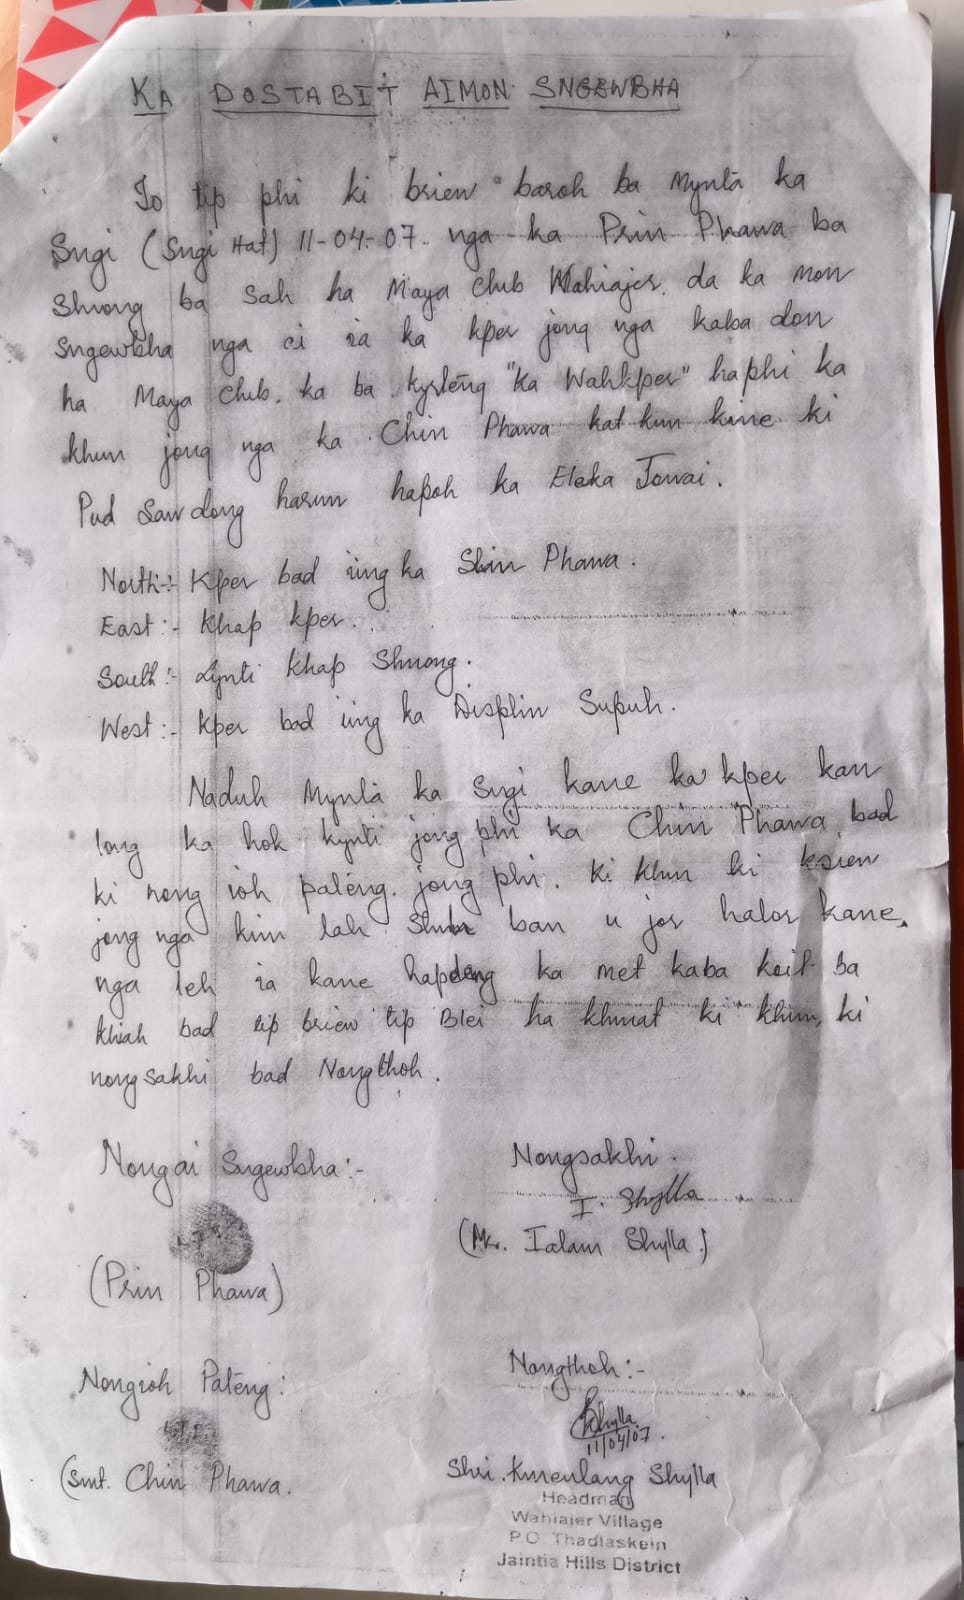 KA DOSTABIT AIMON SNGEWBHA
To tip phi ki briew baroh ba Mynta ka
Sngi (Sngi Hat) 11-04-07. nga ka Prin Phawa ba
Shnong ba sah ha Maya Club Wahiajer. da ka mon
sngewbha nga ai ia ka kper jong nga kaba don
ha Maya Club. ka ba kyrteng "ka Wahkper" ha phi ka
khun jong nga ka Chin Phawa kat kum kine ki
Pud Sawdong harum hapoh ka Elaka Jowai.
North:- Kper bad iing ka Slin Phawa.
East:- Khap kper.
South:- Lynti khap Shnong.
West:- Kper bad iing ka Displin Supuh.
Naduh Mynta ka Sngi kane ka kper kan
long ka hok kynti jong phi ka Chin Phawa, bad
ki nong ioh pateng. jong phi. Ki khun ki ksiew
jong nga kim lah ban u jor halor kane.
nga leh ia kane hapdeng ka met kaba koit ba
khiah bad tip briew tip Blei ha khmat ki khun, ki
nongsakhi bad Nongthoh.
Nongai Sngewbha:-
Nongsakhi.
I. Shylla
(Mr. Ialam Shylla.)
(Prin Phawa)
Nongioh Pateng:
Nongthoh:-
Shylla
11/04/07.
(Smt. Chin Phawa.
Shri. Kmenlang Shylla
Headman
Wahiajer Village
P.O Thadlaskein
Jaintia Hills District